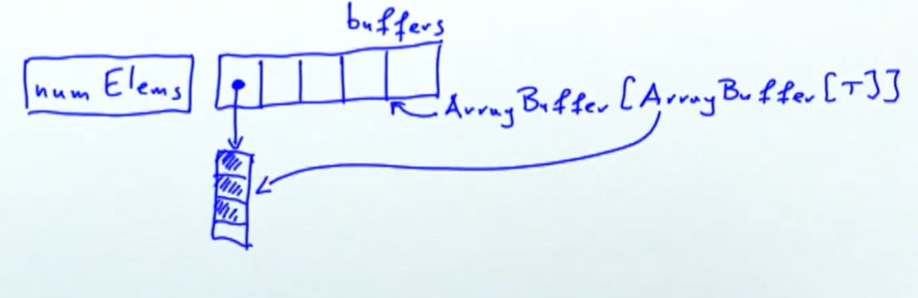 buffers
num Elems
ArrayBuffer[ArrayBuffer[T]]